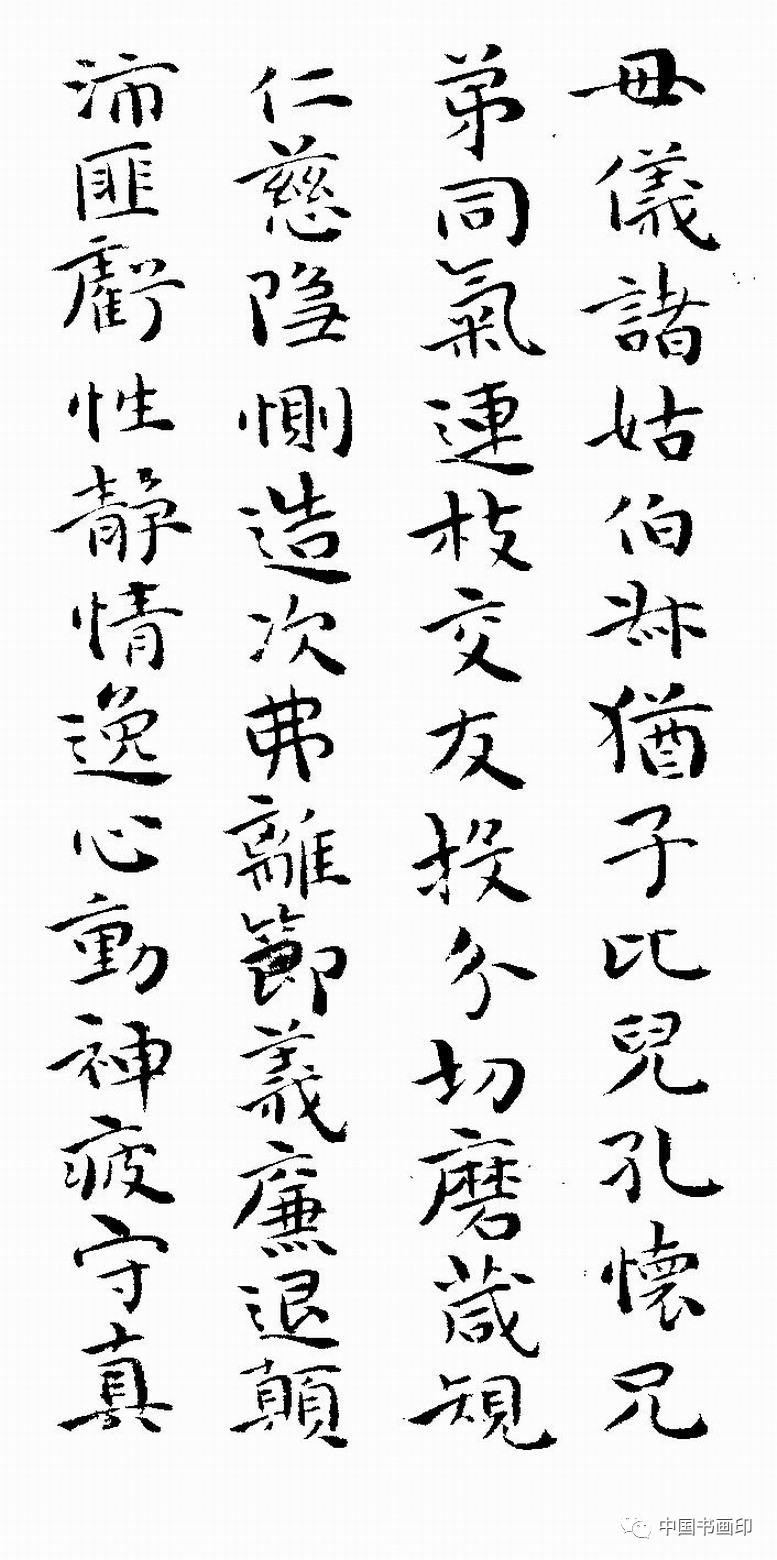 母儀諸姑伯叔猶子比兒孔懷兄
弟同氣連枝交友投分切磨箴規
仁慈隱惻造次弗離節義廉退顛
沛匪虧性靜情逸心動神疲守真
中国书画印